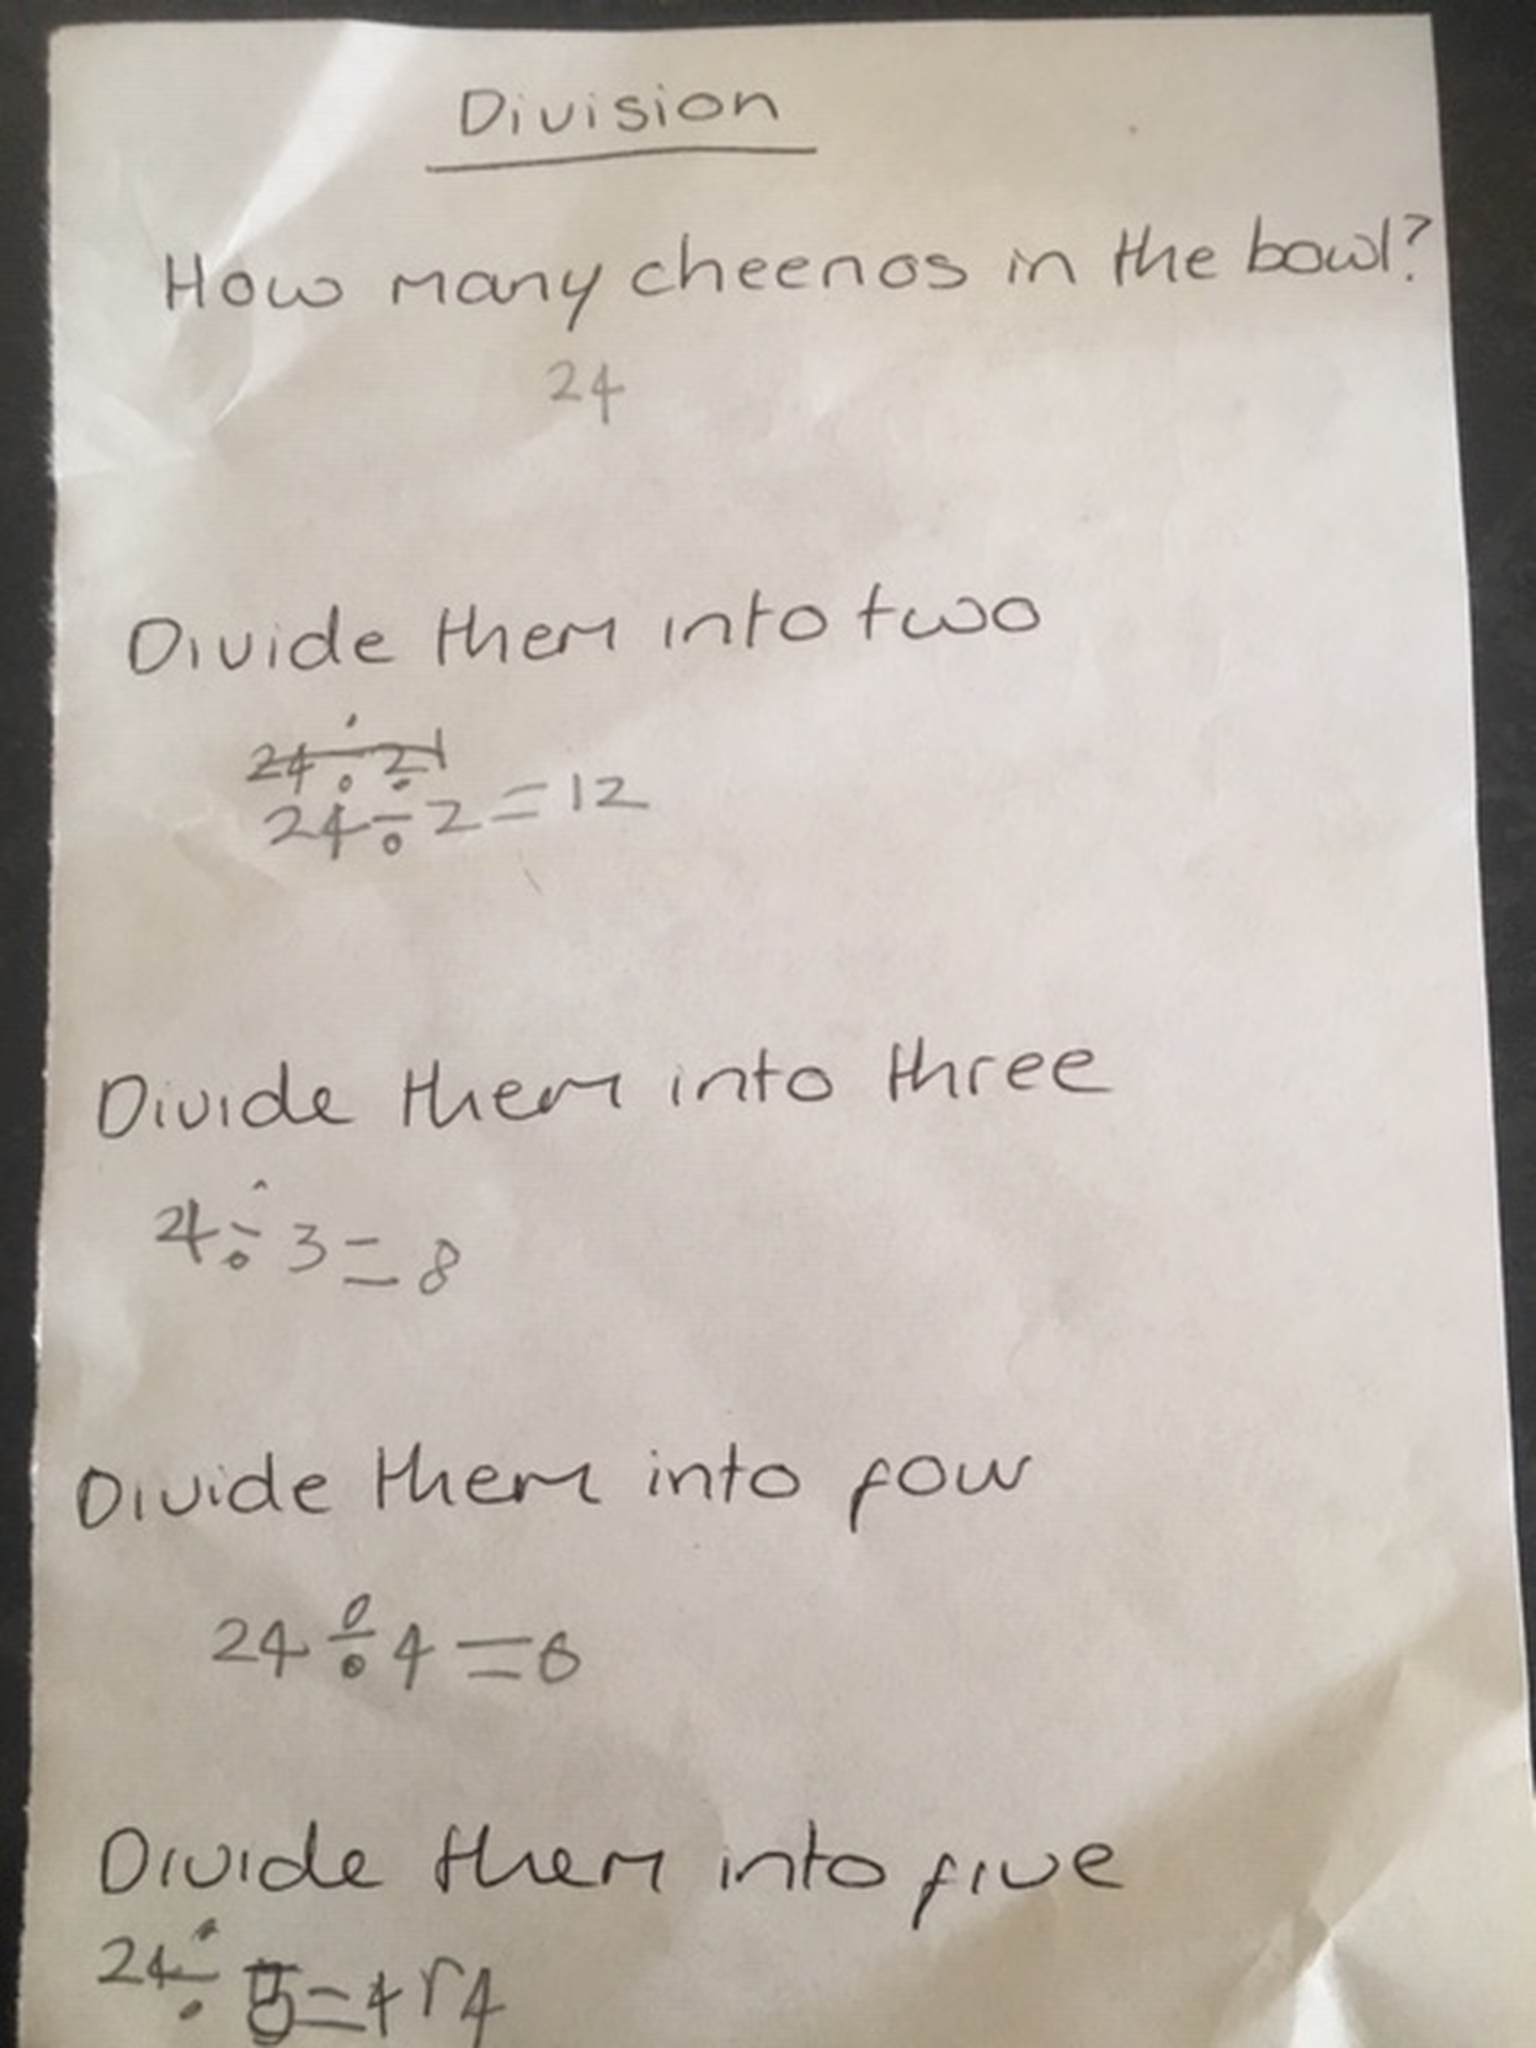 Division
How many cheerios in the bowl?
24
Divide them into two
24 ÷ 2 = 12
Divide them into three
24 ÷ 3 = 8
Divide them into four
24 ÷ 4 = 6
Divide them into five
24 ÷ 5 = 4 r 4